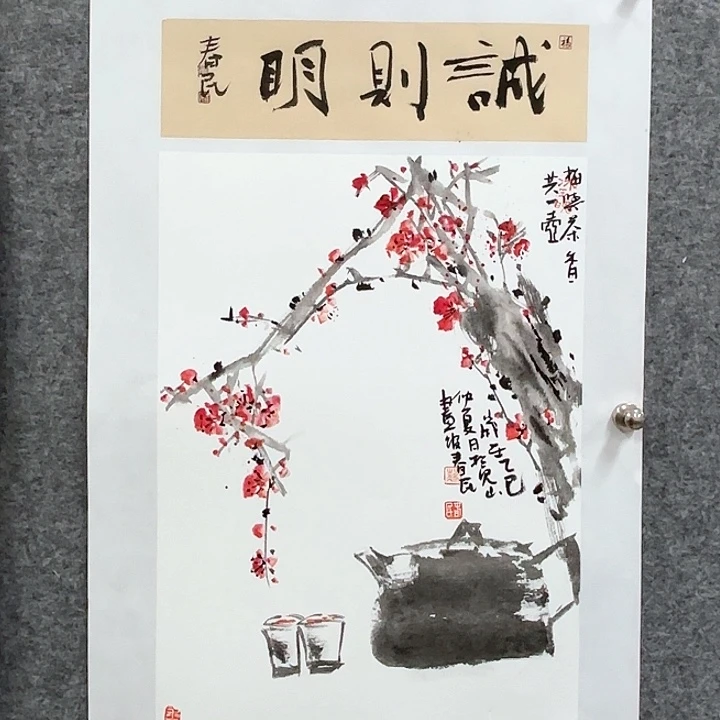 誠則明
春民
梅與茶香
共一壺
歲在乙巳
仲夏日於山
畫坡春民